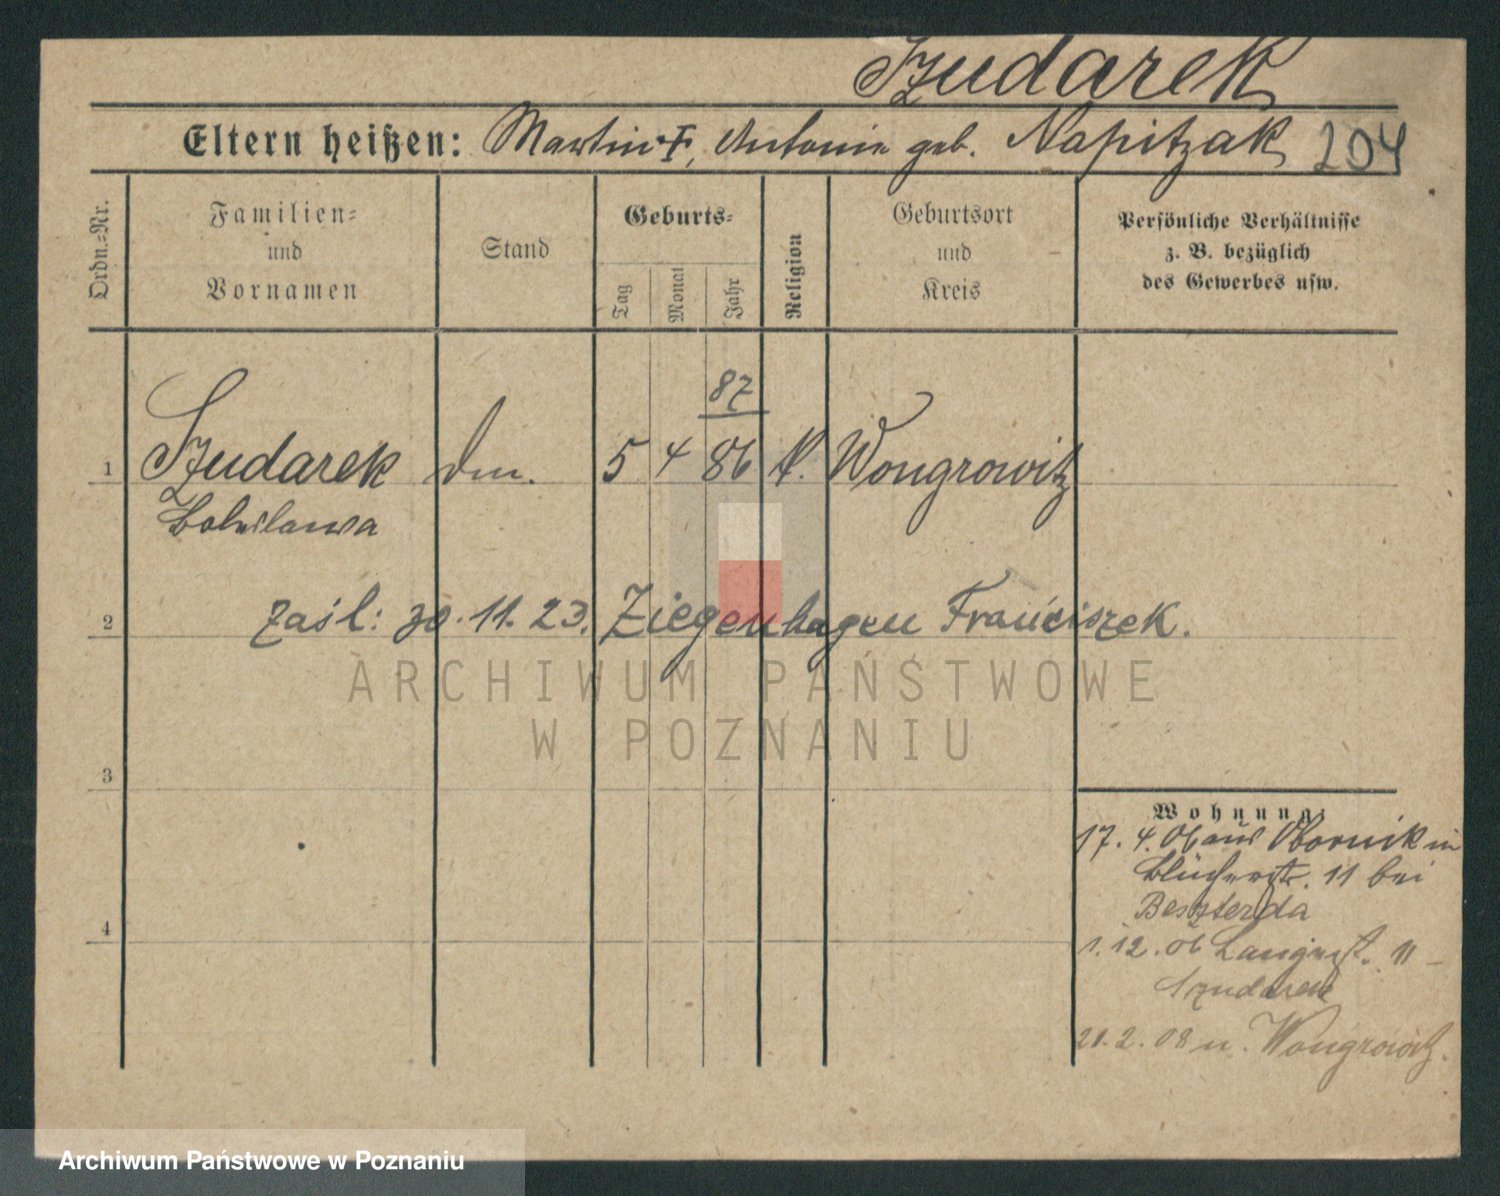 Szudarek
Eltern heißen: Martin †, Antonie geb. Napitzak 204
Ordn.=Nr.
Familien=
und
Vornamen
Stand
Geburts=
Tag
Monat
Jahr
Religion
Geburtsort
und
Kreis
Persönliche Verhältnisse
z. B. bezüglich
des Gewerbes usw.
87
1 Szudarek 5 4 86 k. Wongrowitz
Boleslawa
2 zaśl: 30. 11. 23. Ziegenhagen Franciszek.
3
4
Wohnung:
17. 4. 06 aus Obornik in
Blücherstr. 11 bei
Beszterda
1. 12. 06 Langestr. 11 –
Szudarek
21. 2. 08 n. Wongrowitz.
ARCHIWUM PAŃSTWOWE
W POZNANIU
Archiwum Państwowe w Poznaniu